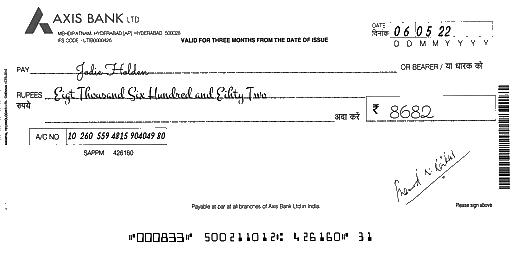 AXIS BANK LTD
MEHDIPATNAM, HYDERABAD [AP] HYDERABAD 500028
IFS CODE - UTIB0000426
VALID FOR THREE MONTHS FROM THE DATE OF ISSUE
DATE
दिनांक 06 05 22
D D M M Y Y Y Y
PAY Jodie Holden OR BEARER / या धारक को
RUPEES Eigt Thousand Six Hundred and Eihty Two
रुपये अदा करें ₹ 8682
A/C NO 10 260 559 4815 904049 80
SAPPM 426160
Payable at par at all branches of Axis Bank Ltd in India.
Please sign above
⑈000833⑈ 500211012⑆ 426160⑈ 31